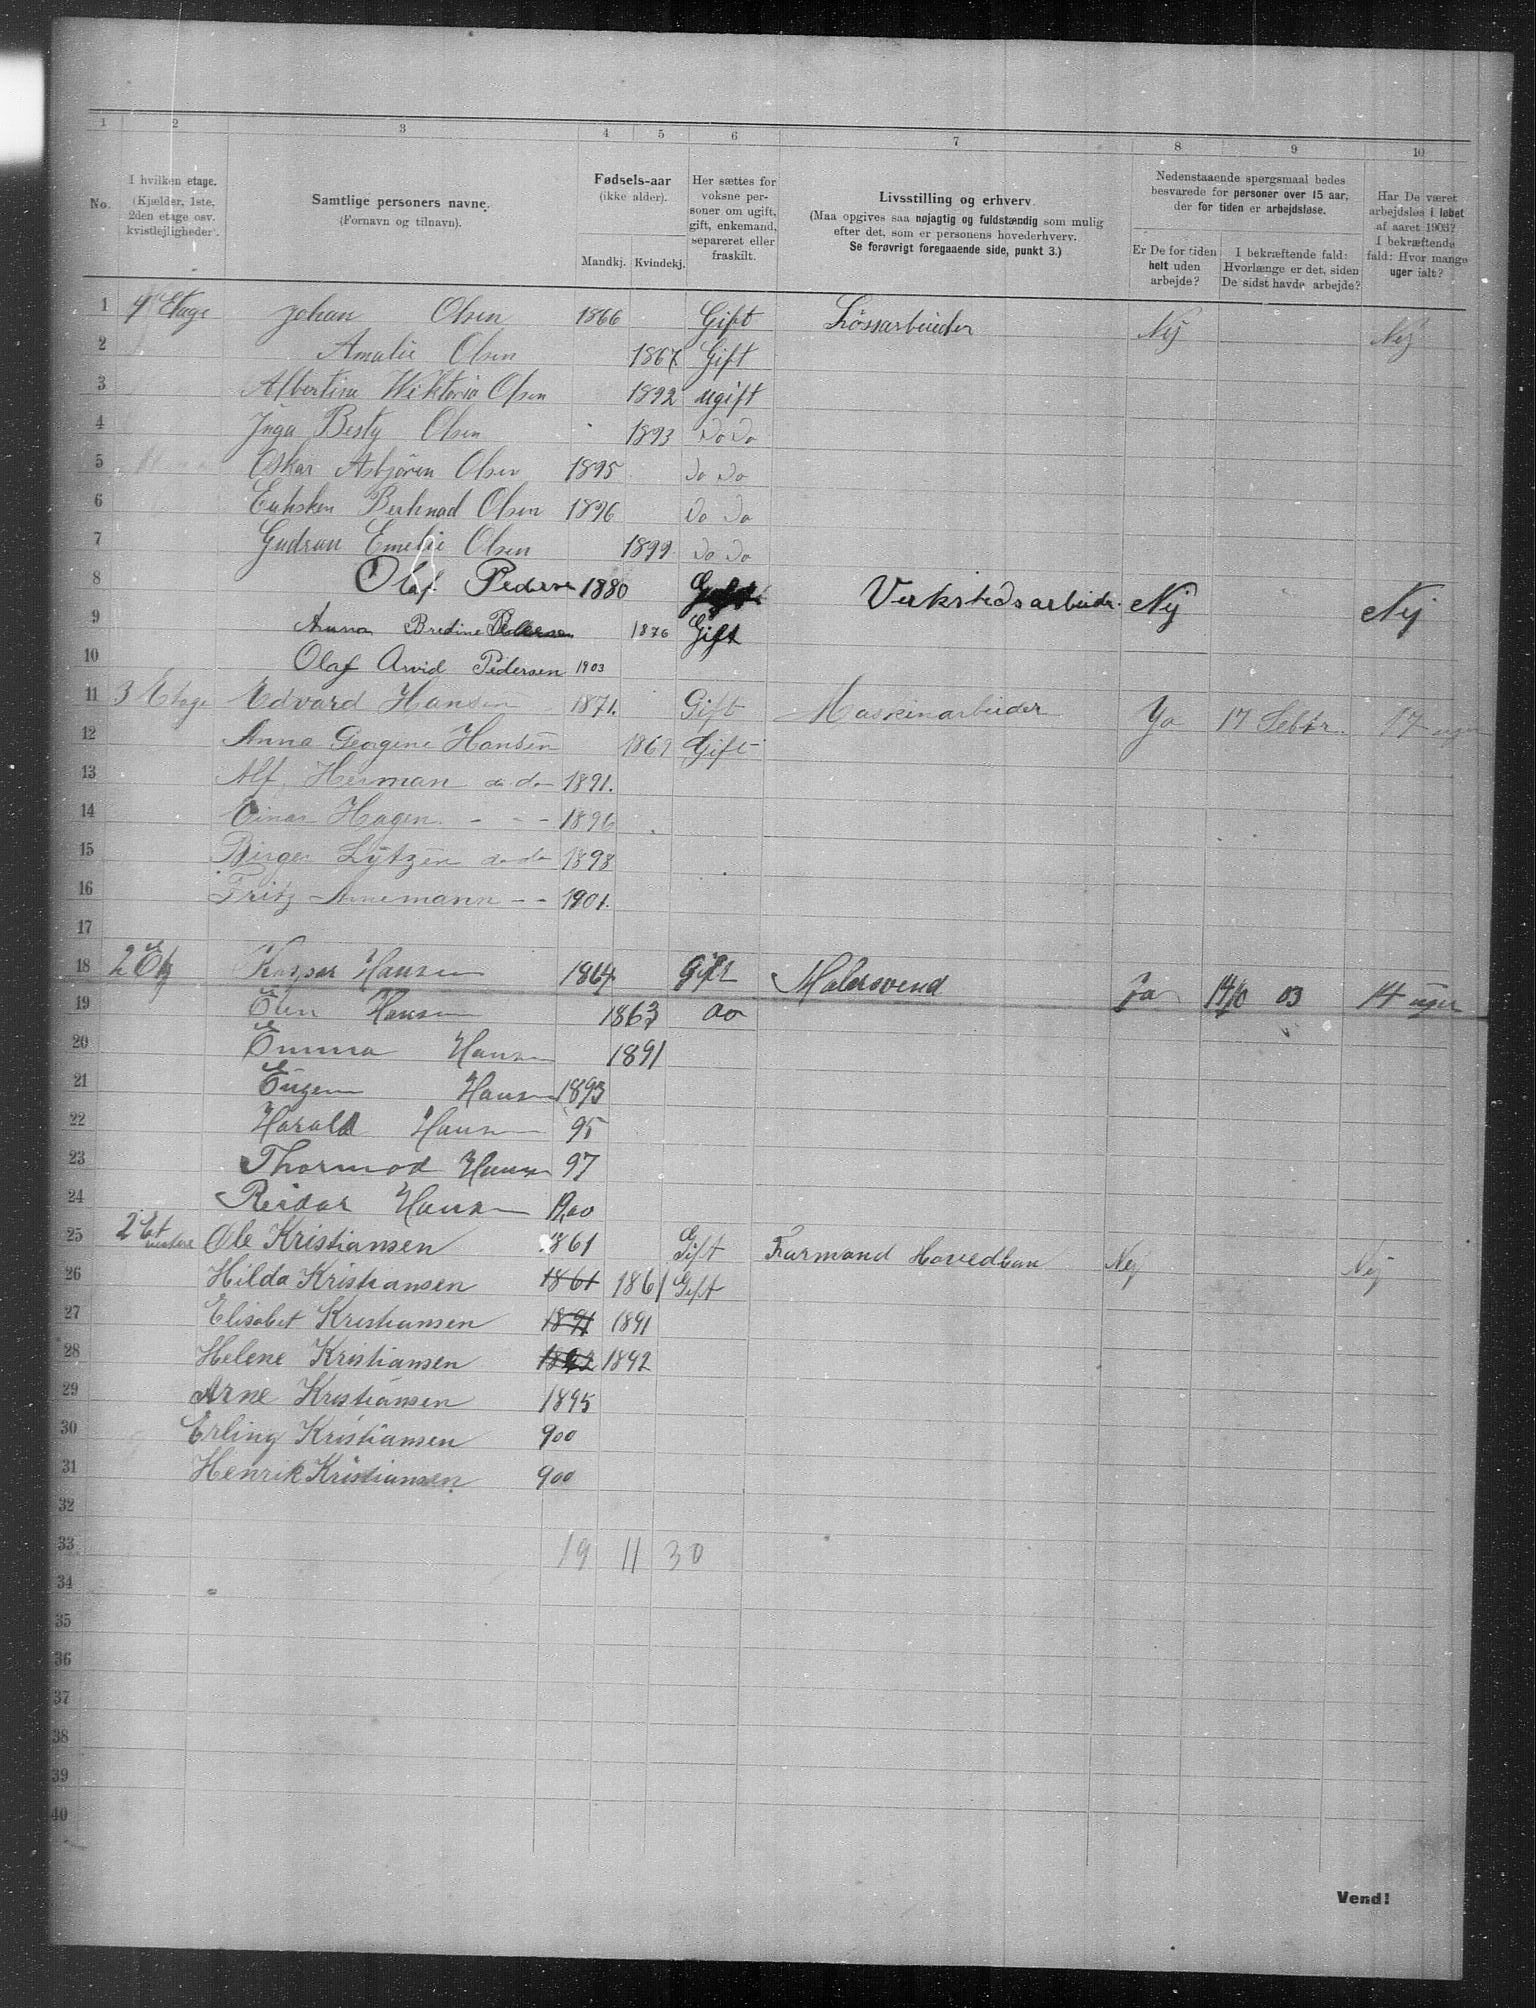 1 2 3 4 5 6 7 8 9 10
No.
I hvilken etage. (Kjælder, 1ste, 2den etage osv. kvistlejligheder).
Samtlige personers navne. (Fornavn og tilnavn).
Fødsels-aar (ikke alder).
Mandkj. Kvindekj.
Her sættes for voksne personer om ugift, gift, enkemand, separeret eller fraskilt.
Livsstilling og erhverv. (Maa opgives saa nøjagtig og fuldstændig som mulig efter det, som er personens hovederhverv. Se forøvrigt foregaaende side, punkt 3.)
Nedenstaaende spørgsmaal bedes besvarede for personer over 15 aar, der for tiden er arbejdsløse.
Er De for tiden helt uden arbejde?
I bekræftende fald: Hvorlænge er det, siden De sidst havde arbejde?
Har De været arbejdsløs i løbet af aaret 1903? I bekræftende fald: Hvor mange uger ialt?
1 4 Etage Johan Olsen 1866 Gift Løssarbeider Nej Nej
2 Amalie Olsen 1867 Gift
3 Albertine Wiktoria Olsen 1892 ugift
4 Inga Besty Olsen 1893 Do Do
5 Oskar Asbjören Olsen 1895 Do Do
6 Olsen 1896 Do Do
7 Gudrun Emelie Olsen 1899 Do Do
8 Olaf Pedersen 1880 Verkstedsarbeidr. Nej Nej
9 Anna Bredine Pedersen 1876 Gift
10 Olaf Arvid Pedersen 1903
11 3 Etage Edvard Hansen 1871. Gift Maskinarbeider Ja 17 Sebtr. 17 uger
12 Anna Georgine Hansen 1869 Gift
13 Alf. Herman do do 1891.
14 Einar Hagen. - - - 1896
15 Birger Lytzen do do 1898
16 Fritz Annemann - - 1901.
17
18 2 Etg Kaspar Hansen 1864 Gift Malersvend Ja 14/10 03 14 uger
19 Elen Hansen 1863 do
20 Emma Hansen 1891
21 Eugen Hansen 1893
22 Harald Hansen 95
23 Thormod Hansen 97
24 Reidar Hansen 1900
25 2 Et Ole Kristiansen 1861 Gift Furmand Hovedban Nej Nej
26 Hilda Kristiansen 1861 1861 Gift
27 Elisabet Kristiansen 1891 1891
28 Helene Kristiansen 1892 1892
29 Arne Kristiansen 1895
30 Erling Kristiansen 900
31 Henrik Kristiansen 900
32
33 19 11 30
34
35
36
37
38
39
40
Vend!